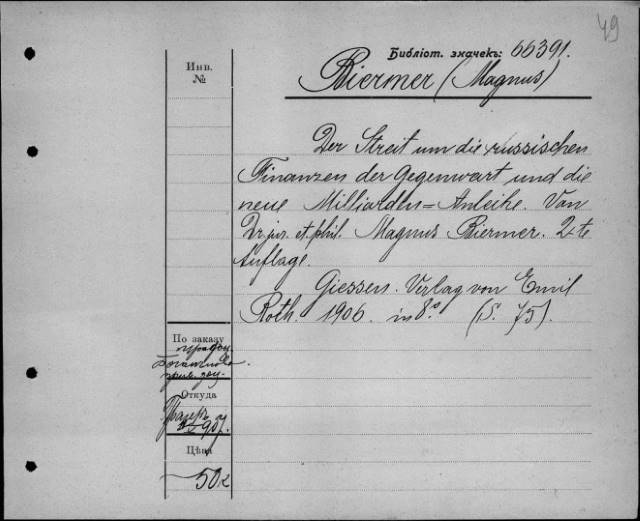 49
Библіот. значекъ: 66391.
Инв.
№
Biermer (Magnus)
Der Streit um die russischen
Finanzen der Gegenwart und die
neue Milliarden=Anleihe. Von
Dr. jur. et. phil. Magnus Biermer. 2-te
Auflage.
Giessen. Verlag von Emil
Roth. 1906. in 8.º (S. 75).
По заказу
Откуда
Цѣна
50 к